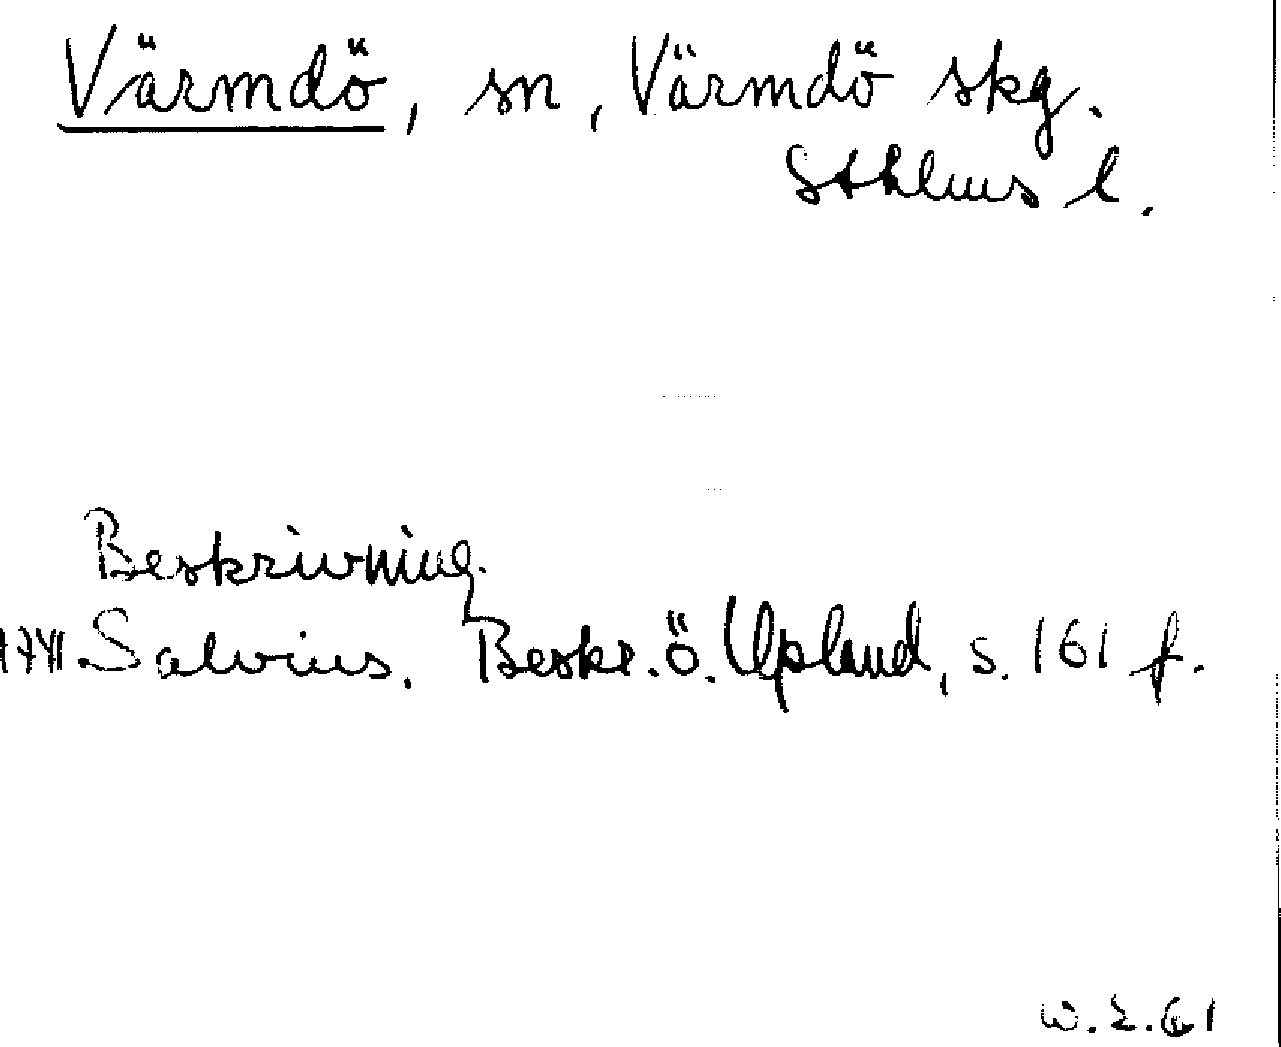 Värmdö, sn, Värmdö skg.
Sthlms l.
Beskrivning.
1741. Salvius. Beskr. ö. Upland, s. 161 f.
W.2.61